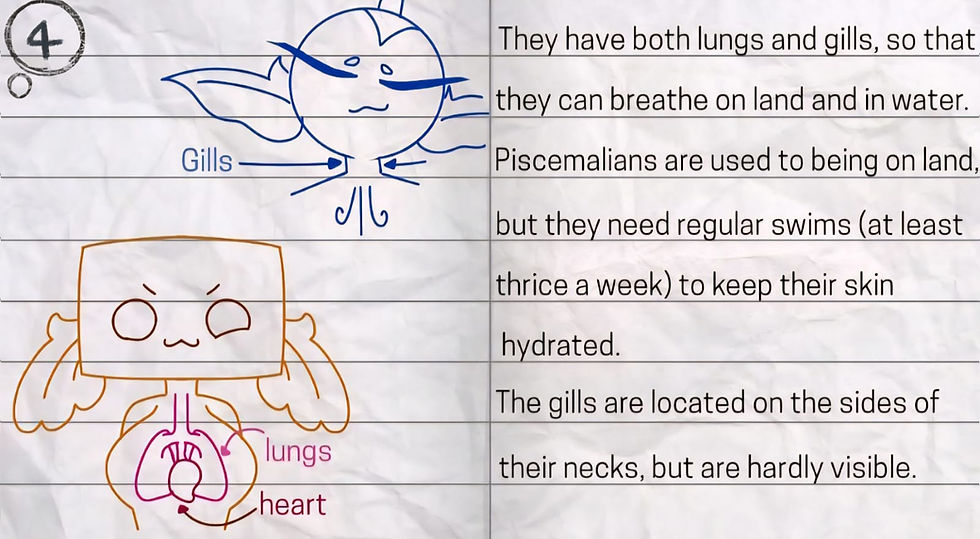 4
Gills
lungs
heart
They have both lungs and gills, so that
they can breathe on land and in water.
Piscemalians are used to being on land,
but they need regular swims (at least
thrice a week) to keep their skin
hydrated.
The gills are located on the sides of
their necks, but are hardly visible.